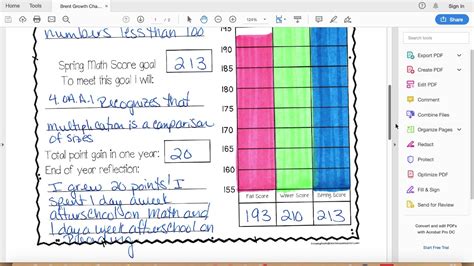 Brent Growth Cha...
Sign In
1 / 2
Share
numbers less than 100
Spring Math Score goal:
213
To meet this goal I will:
4.OA.A.1 Recognize that
multiplication is a comparison
of sizes
Total point gain in one year:
20
End of year reflection:
I grew 20 points! I
spent 1 day a week
afterschool on Math and
1 day a week afterschool on
Reading
195
190
185
180
175
170
165
160
155
Fall Score
Winter Score
Spring Score
193
210
213
Search tools
Export PDF
Create PDF
Edit PDF
Comment
Combine Files
Organize Pages
Redact
Protect
Optimize PDF
Fill & Sign
Send for Review
Convert and edit PDFs
with Acrobat Pro DC
Start Free Trial